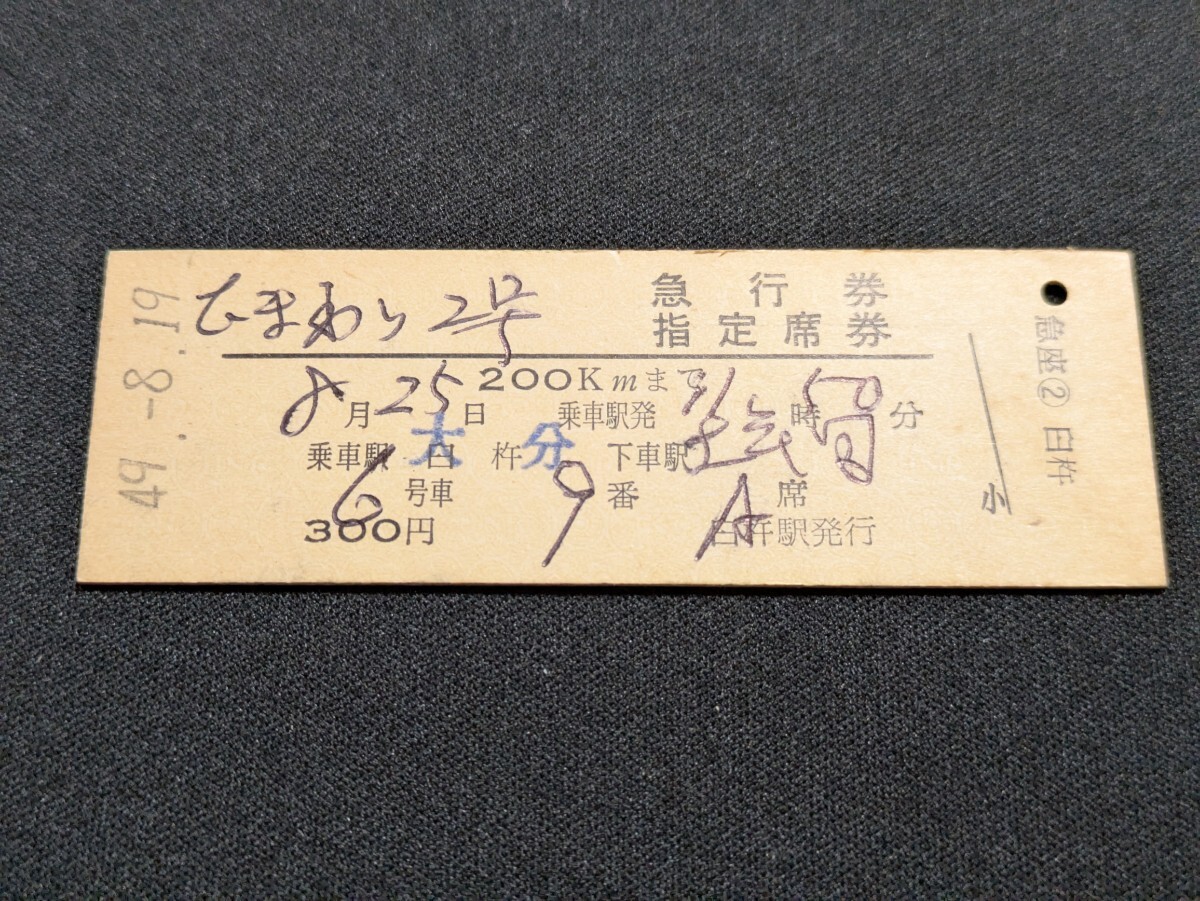 49.-8.19
ひまわり 2号
急行券
指定席券
200Kmまで
8月25日 乗車駅発 時50分
乗車駅 臼杵 大分 下車駅
6号車 9番 A席
300円 臼杵駅発行
小
急座② 臼杵